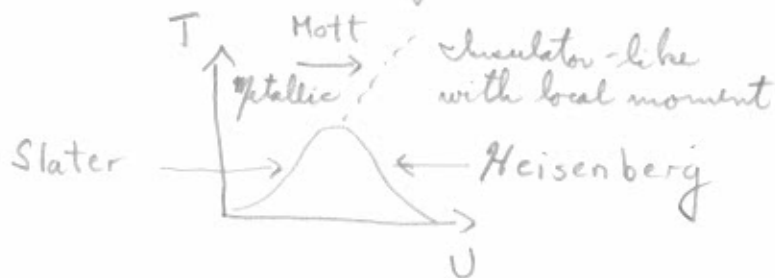 T
Mott
Metallic
Insulator-like
with local moment
Slater
Heisenberg
U